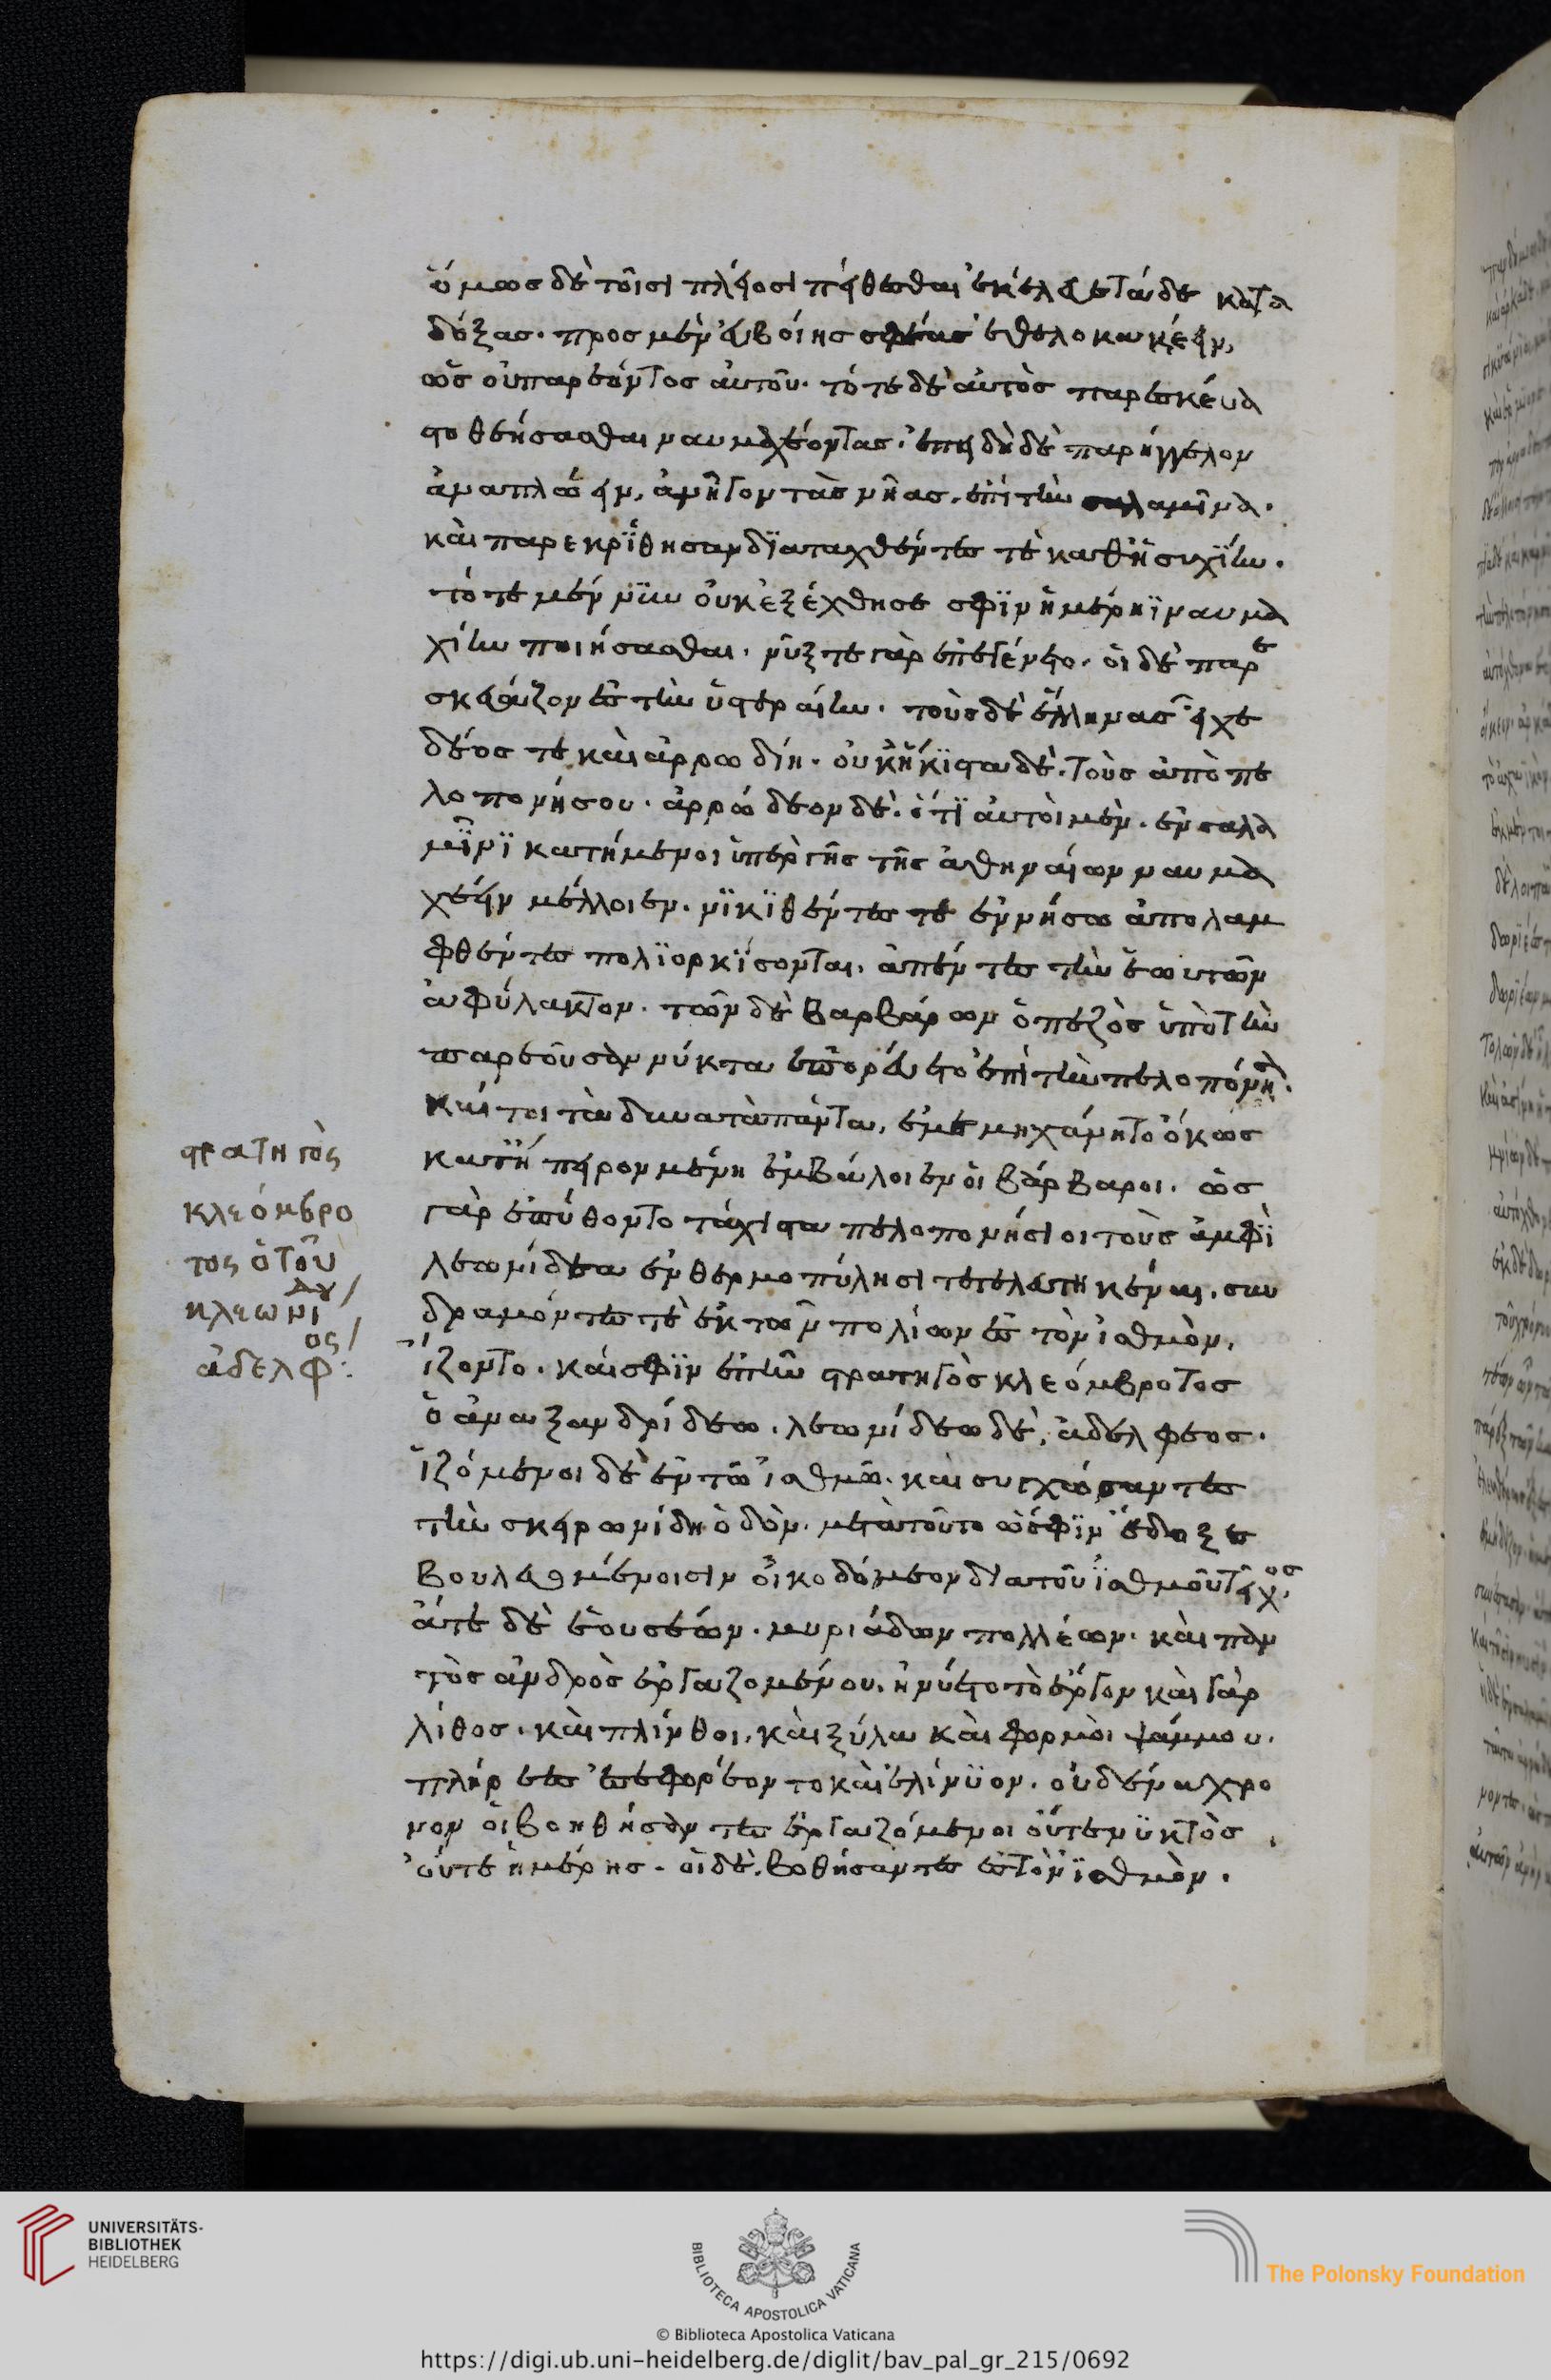 ὅμως δὲ τοῖσι πλέοσι πείθεσθαι ἐκέλευε τάδε κατα
δόξας. προς μὲν εὐβοίης σφέας ἐθελοκακέειν,
ὡς οὐ παρεόντος αὐτοῦ. τότε δὲ αὐτὸς παρεσκεύα
στο θεήσασθαι ναυμαχέοντας. ἐπειδὴ δὲ παρήγγελον
ἀναπλώειν, ἀνῆγον τὰς νῆας. ἐπὶ τὴν σαλαμῖνα.
καὶ παρεκρίθησαν διαταχθέντες τὲ καθ' ἡσυχίην.
τότε μέν νῦν οὐκ ἐξέχθησε σφϊν ἡμέρηϊ ναυμα
χίην ποιήσασθαι. νὺξ τε γὰρ ἐπεγένετο. οἱ δὲ παρε
σκευάζοντο ἐς τὴν ὑστεραίην. τοὺς δὲ ἕλληνας εἶχε
δέος τε καὶ ἀρρωδίη. οὐκ ἥκιστα δὲ. τοὺς ἀπὸ πε
λοπονήσου. ἀρρώδεον δὲ. ὅτϊ αὐτοὶ μὲν. ἐν σαλα
μῖνϊ κατήμενοι ὑπὲρ γῆς τῆς ἀθηναίων ναυμα
χέειν μέλλοιεν. νικϊθέντες τε ἐν νήσω ἀπολαμ
φθέντες πολϊορκϊσονται. ἀπέντες τὴν ἑωυτῶν
ἀφύλακτον. τῶν δὲ βαρβάρων ὁ πεζὸς ὑπὸ τὴν
παρεοῦσαν νύκτα ἐπορεύετο ἐπὶ τὴν πελοπόνη.
καί τοι τὰ δυνατὰ πάντα, ἐμεμηχάνητο ὅκως
κατ' ἤπειρον μένη ἐμβάλοιεν οἱ βάρβαροι. ὡς
γὰρ ἐπύθοντο τάχιστα πελοπονήσιοι τοὺς ἀμφὶ
λεωνίδεα ἐν θερμοπύλησι τετελευτηκέναι, συν
δραμόντες τὲ ἐκ τῶν πολίων ἐς τὸν ἰσθμὸν.
ἵζοντο. καί σφϊν ἐπῆν στρατηγὸς κλεόμβροτος
ὁ ἀναξανδρίδεω. λεωνίδεω δὲ, ἀδελφεος.
ἱζόμενοι δὲ ἐν τῶ ἰσθμῶ. καὶ συγχώσαντες
τὴν σκειρωνίδη ὁδὸν. μετὰ τοῦτο ὥς σφϊν ἔδοξε
βουλευομένοισιν οἰκοδόμεον διὰ τοῦ ἰσθμοῦ τεῖχος
ἅτε δὲ ἐουσέων. μυριάδων πολλέων. καὶ παν
τὸς ἀνδρὸς ἐργαζομένου. ἠνύετο τὸ ἔργον καὶ γὰρ
λίθος. καὶ πλίνθοι. καὶ ξύλα καὶ φορμοὶ ψάμμου.
πλήρεες ἐσεφορέοντο καὶ ἐλίνϋον. οὐδένα χρο
νον οἱ βοηθήσαντες ἐργαζόμενοι οὔτε νϋκτὸς
οὔτε ἡμέρης. οἱ δὲ. βοθήσαντες ἐς τὸν ἰσθμὸν.
στρατηγὸς
κλεόμβρο
τος ὁ τοῦ
κλεωνίδου
ἀδελφος:
UNIVERSITÄTS-
BIBLIOTHEK
HEIDELBERG
BIBLIOTECA APOSTOLICA VATICANA
The Polonsky Foundation
© Biblioteca Apostolica Vaticana
https://digi.ub.uni-heidelberg.de/diglit/bav_pal_gr_215/0692